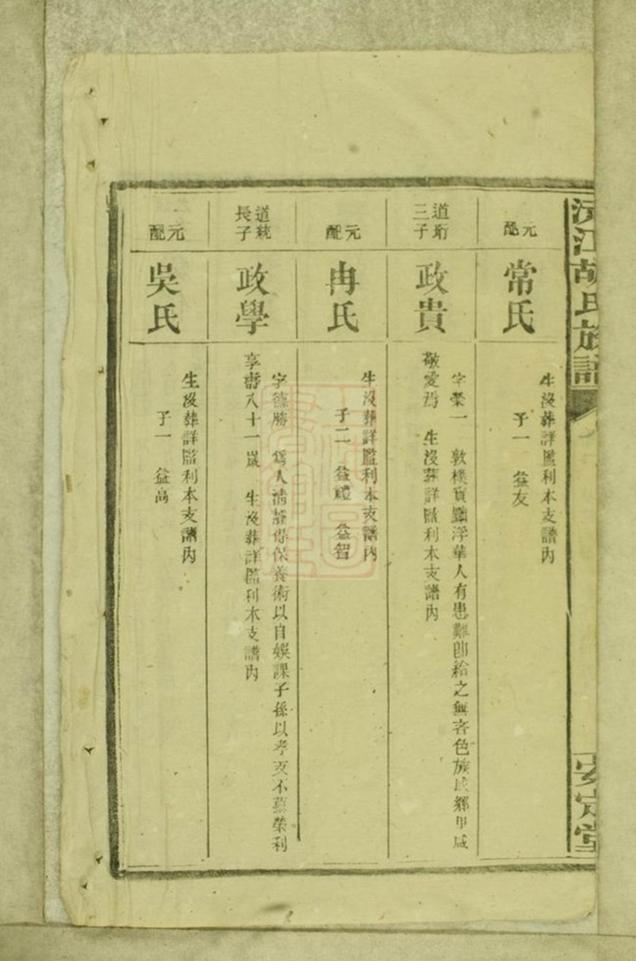 沔江胡氏族譜
安定堂
元配
常氏
生沒葬詳監利本支譜內
子一 益友
道珩
三子
政貴
字榮一 敦樸實黜浮華人有患難卽給之無吝色族戚鄉里咸
敬愛焉 生沒葬詳監利本支譜內
元配
冉氏
生沒葬詳監利本支譜內
子二 益禮 益智
道統
長子
政學
字德勝 爲人清謹保養術以自娛課子孫以孝友不慕榮利
享壽八十一歲 生沒葬詳監利本支譜內
元配
吳氏
生沒葬詳監利本支譜內
子一 益高